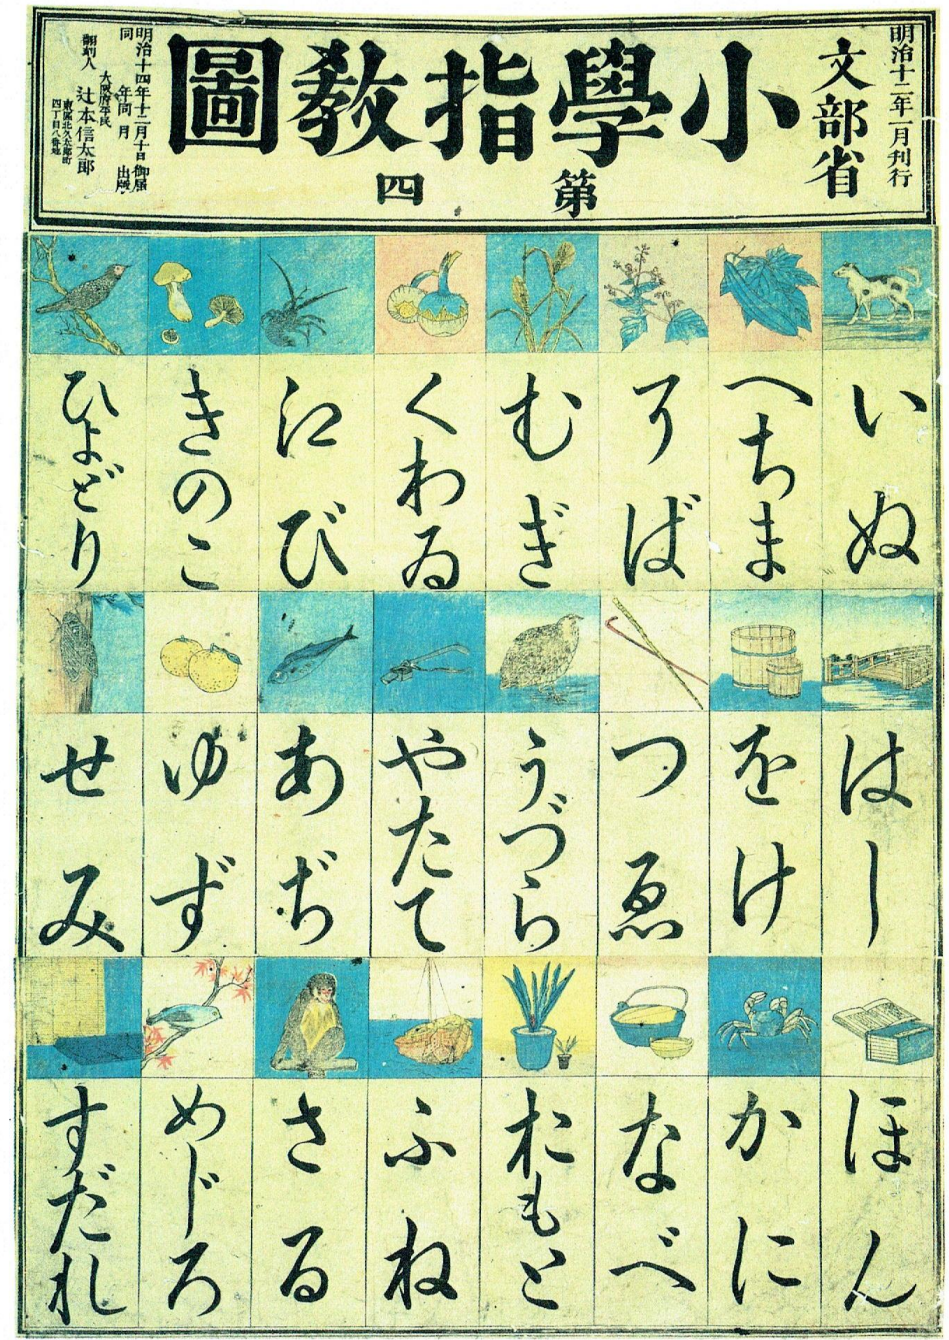 明治十二年一月刊行
文部省
小學指教圖
第四
明治十四年十二月十日御届
同 年同月 出版
大阪府平民
翻刻人 辻本信太郎
東區北久太郎町
四丁目八番地
いぬ
へちま
そば
むぎ
くわゐ
江び
きのこ
ひよどり
はし
をけ
つゑ
うづら
やたて
あぢ
ゆず
せみ
ほん
かに
なべ
おもと
ふね
さる
めじろ
すだれ